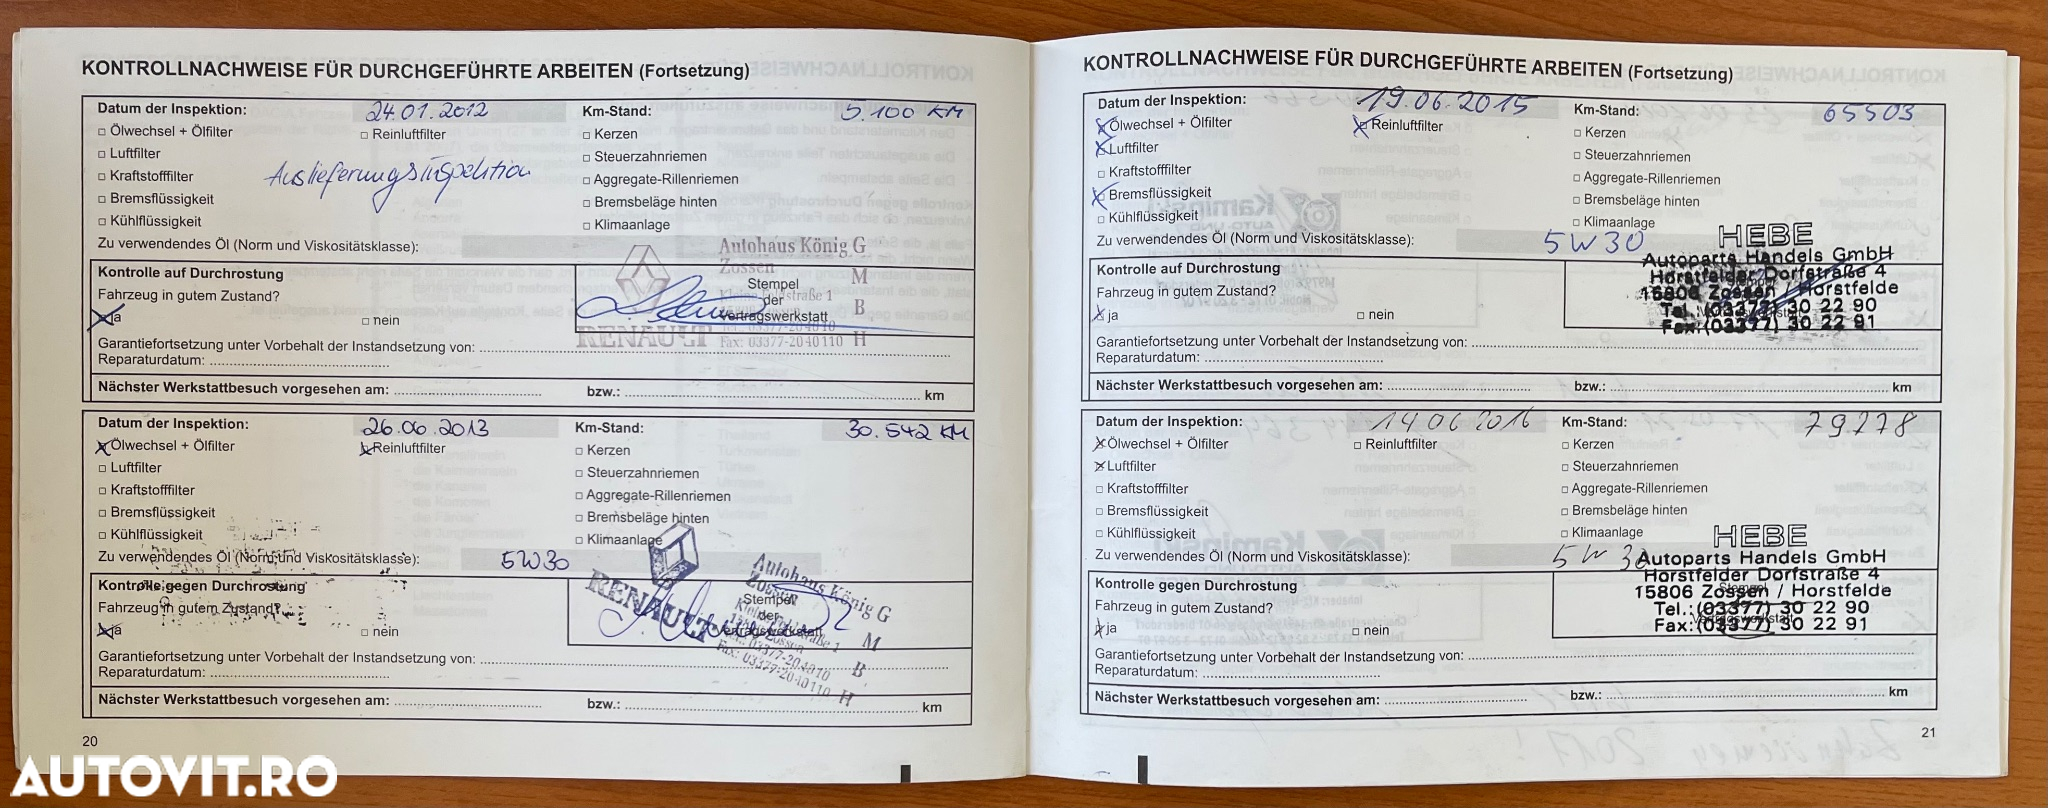 KONTROLLNACHWEISE FÜR DURCHGEFÜHRTE ARBEITEN (Fortsetzung)
Datum der Inspektion: 24.01.2012 Km-Stand: 5.100 KM
□ Ölwechsel + Ölfilter □ Reinluftfilter □ Kerzen
□ Luftfilter □ Steuerzahnriemen
□ Kraftstofffilter Auslieferungsinspektion □ Aggregate-Rillenriemen
□ Bremsflüssigkeit □ Bremsbeläge hinten
□ Kühlflüssigkeit □ Klimaanlage
Zu verwendendes Öl (Norm und Viskositätsklasse):
Kontrolle auf Durchrostung
Fahrzeug in gutem Zustand?
ja □ nein
Autohaus König G
Zossen M
Stempel
der
Kleine Feldstraße 1 B
Vertragswerkstatt
RENAULT
Tel.: 03377-204010
Fax: 03377-2040110 H
Garantiefortsetzung unter Vorbehalt der Instandsetzung von:
Reparaturdatum:
Nächster Werkstattbesuch vorgesehen am: bzw.: km
Datum der Inspektion: 26.06.2013 Km-Stand: 30.542 KM
Ölwechsel + Ölfilter Reinluftfilter □ Kerzen
□ Luftfilter □ Steuerzahnriemen
□ Kraftstofffilter □ Aggregate-Rillenriemen
□ Bremsflüssigkeit □ Bremsbeläge hinten
□ Kühlflüssigkeit □ Klimaanlage
Zu verwendendes Öl (Norm und Viskositätsklasse): 5W30
Kontrolle gegen Durchrostung
Fahrzeug in gutem Zustand?
ja □ nein
RENAULT
Autohaus König G
Zossen M
Stempel
der
Kleine Feldstraße 1 B
Vertragswerkstatt
Tel.: 03377-204010
Fax: 03377-2040110 H
Garantiefortsetzung unter Vorbehalt der Instandsetzung von:
Reparaturdatum:
Nächster Werkstattbesuch vorgesehen am: bzw.: km
20
KONTROLLNACHWEISE FÜR DURCHGEFÜHRTE ARBEITEN (Fortsetzung)
Datum der Inspektion: 19.06.2015 Km-Stand: 65503
Ölwechsel + Ölfilter Reinluftfilter □ Kerzen
Luftfilter □ Steuerzahnriemen
□ Kraftstofffilter □ Aggregate-Rillenriemen
Bremsflüssigkeit □ Bremsbeläge hinten
□ Kühlflüssigkeit □ Klimaanlage
Zu verwendendes Öl (Norm und Viskositätsklasse): 5W30
Kontrolle auf Durchrostung
Fahrzeug in gutem Zustand?
ja □ nein
HEBE
Autoparts Handels GmbH
Horstfelder Dorfstraße 4
15806 Zossen / Horstfelde
Tel.:(03377) 30 22 90
Fax:(03377) 30 22 91
Garantiefortsetzung unter Vorbehalt der Instandsetzung von:
Reparaturdatum:
Nächster Werkstattbesuch vorgesehen am: bzw.: km
Datum der Inspektion: 14 06 2016 Km-Stand: 79278
Ölwechsel + Ölfilter □ Reinluftfilter □ Kerzen
Luftfilter □ Steuerzahnriemen
□ Kraftstofffilter □ Aggregate-Rillenriemen
□ Bremsflüssigkeit □ Bremsbeläge hinten
□ Kühlflüssigkeit □ Klimaanlage
Zu verwendendes Öl (Norm und Viskositätsklasse): 5W 30
Kontrolle gegen Durchrostung
Fahrzeug in gutem Zustand?
ja □ nein
HEBE
Autoparts Handels GmbH
Horstfelder Dorfstraße 4
15806 Zossen / Horstfelde
Tel.:(03377) 30 22 90
Fax:(03377) 30 22 91
Garantiefortsetzung unter Vorbehalt der Instandsetzung von:
Reparaturdatum:
Nächster Werkstattbesuch vorgesehen am: bzw.: km
21
AUTOVIT.RO